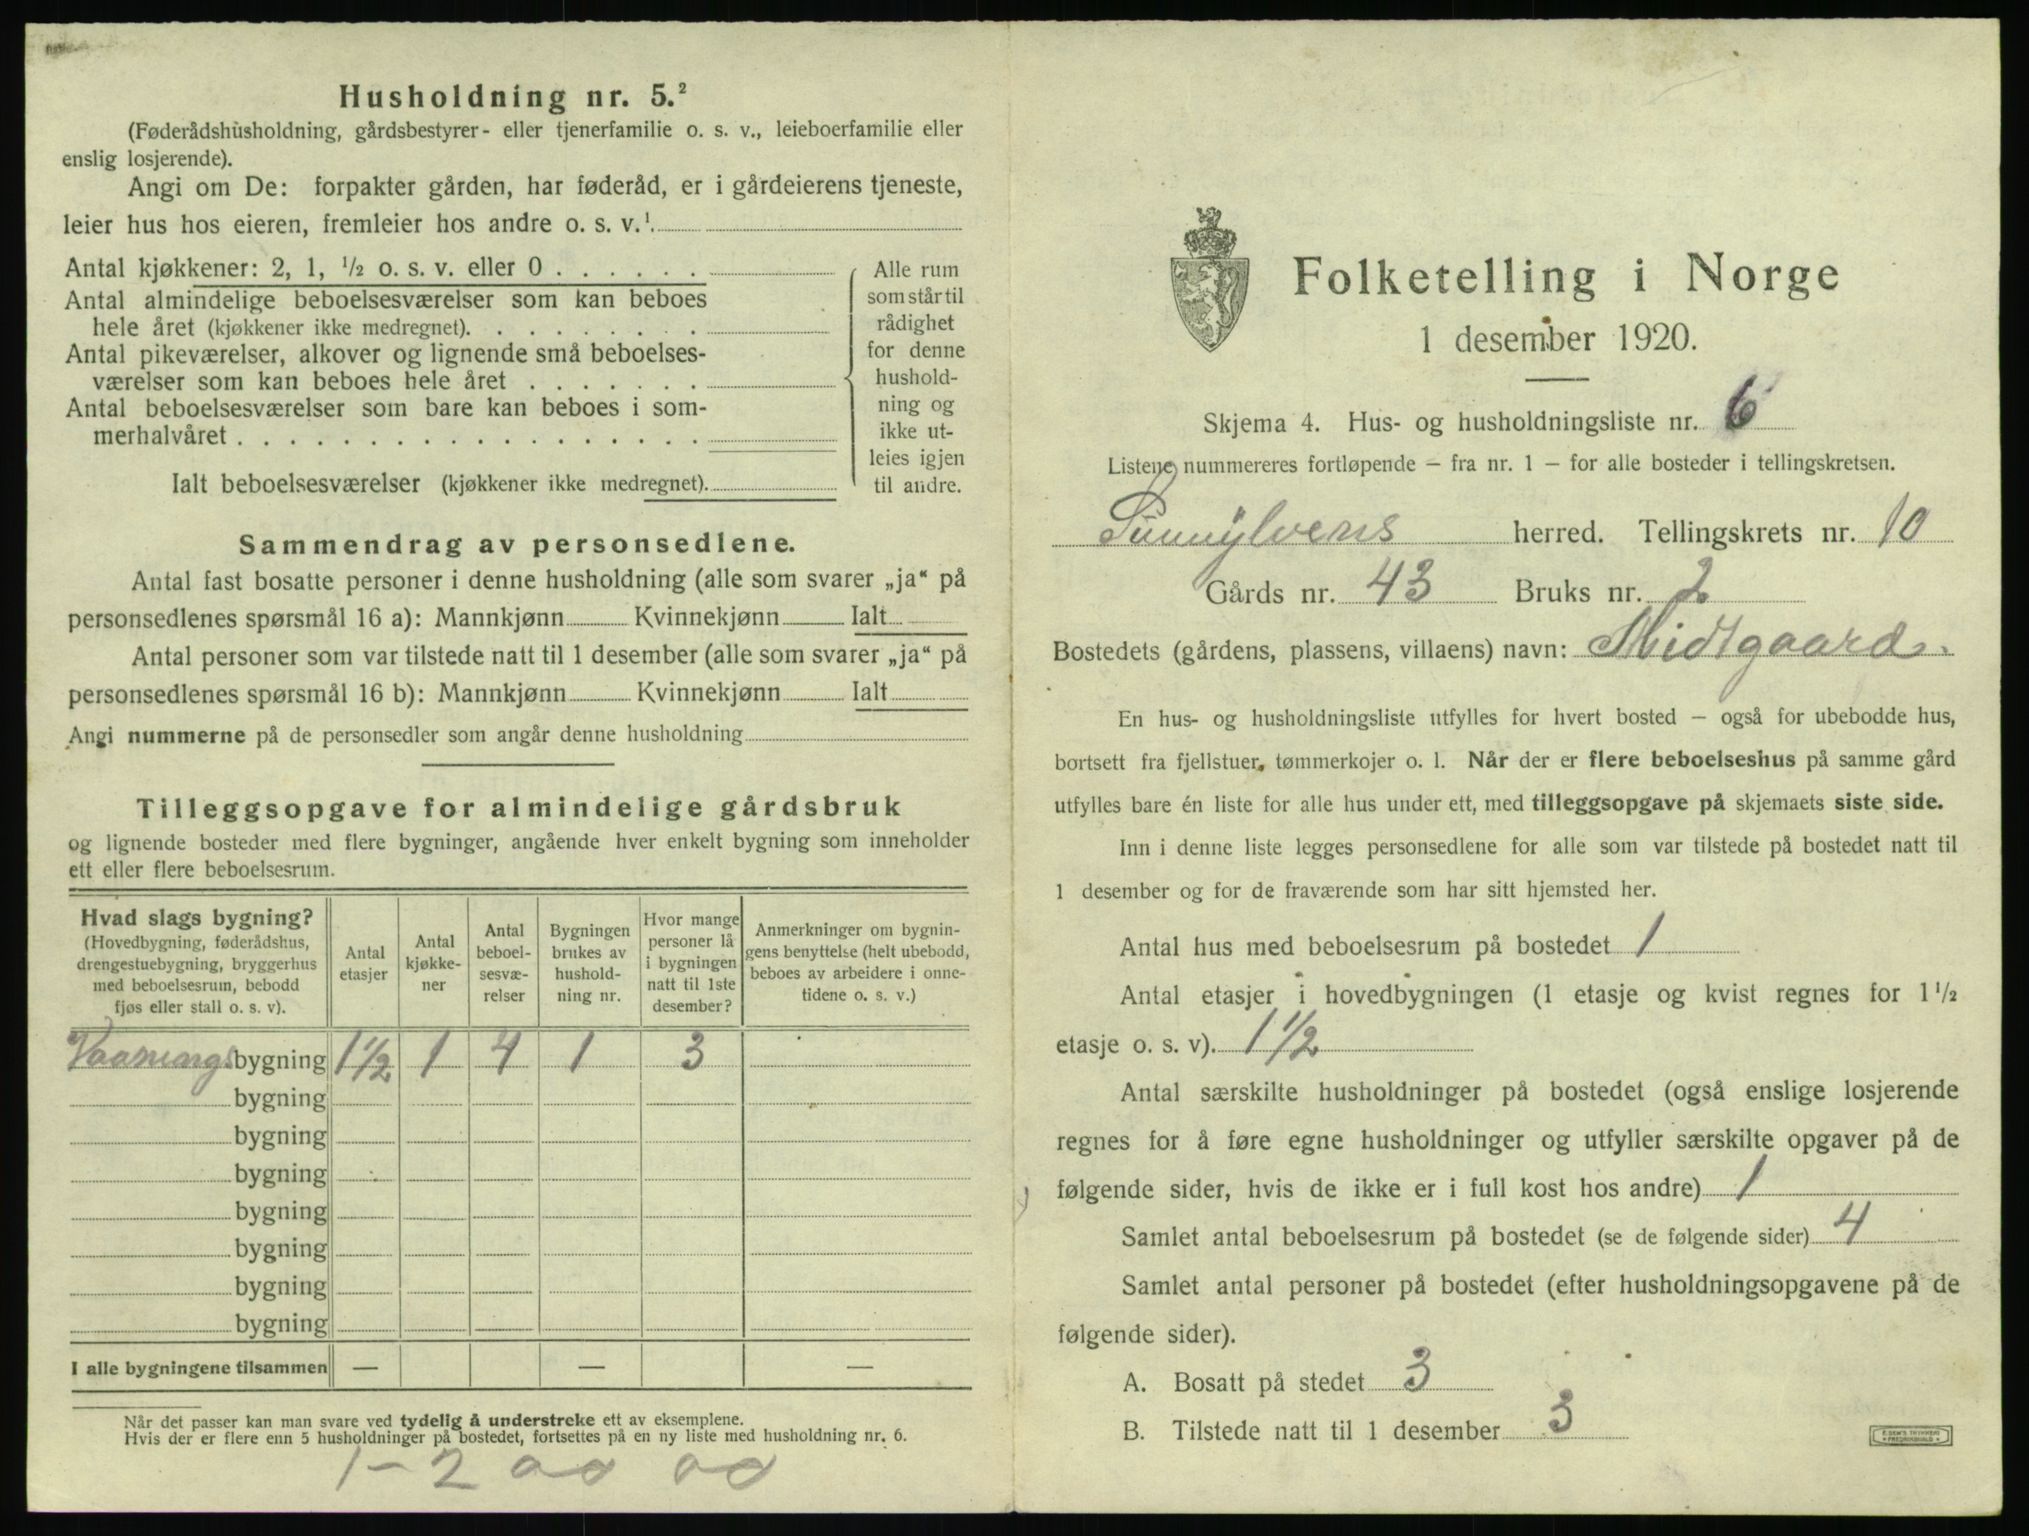 Husholdning nr. 5.²
(Føderådshùsholdning, gårdsbestyrer- eller tjenerfamilie o. s. v., leieboerfamilie eller
enslig losjerende).
Angi om De: forpakter gården, har føderåd, er i gårdeierens tjeneste,
leier hus hos eieren, fremleier hos andre o. s. v.¹
Antal kjøkkener: 2, 1, ½ o. s. v. eller 0 . . . . . .
Antal almindelige beboelsesværelser som kan beboes
hele året (kjøkkener ikke medregnet). . . . . . . . .
Antal pikeværelser, alkover og lignende små beboelses-
værelser som kan beboes hele året . . . . . . .
Antal beboelsesværelser som bare kan beboes i som-
merhalvåret . . . . . . . . . . . . . . . . . .
Ialt beboelsesværelser (kjøkkener ikke medregnet).
Alle rum
som står til
rådighet
for denne
hushold-
ning og
ikke ut-
leies igjen
til andre.
Sammendrag av personsedlene.
Antal fast bosatte personer i denne husholdning (alle som svarer „ja“ på
personsedlenes spørsmål 16 a): Mannkjønn Kvinnekjønn Ialt
Antal personer som var tilstede natt til 1 desember (alle som svarer „ja“ på
personsedlenes spørsmål 16 b): Mannkjønn Kvinnekjønn Ialt
Angi nummerne på de personsedler som angår denne husholdning
Tilleggsopgave for almindelige gårdsbruk
og lignende bosteder med flere bygninger, angående hver enkelt bygning som inneholder
ett eller flere beboelsesrum.
Hvad slags bygning?
(Hovedbygning, føderådshus,
drengestuebygning, bryggerhus
med beboelsesrum, bebodd
fjøs eller stall o. s. v).
Antal
etasjer
Antal
kjøkke-
ner
Antal
beboel-
sesvæ-
relser
Bygningen
brukes av
hushold-
ning nr.
Hvor mange
personer lå
i bygningen
natt til 1ste
desember?
Anmerkninger om bygnin-
gens benyttelse (helt ubebodd,
beboes av arbeidere i onne-
tidene o. s. v.)
Vaanings bygning 1½ 1 4 1 3
bygning
bygning
bygning
bygning
bygning
bygning
bygning
I alle bygningene tilsammen — — —
Når det passer kan man svare ved tydelig å understreke ett av eksemplene.
Hvis der er flere enn 5 husholdninger på bostedet, fortsettes på en ny liste med husholdning nr. 6.
1-2
Folketelling i Norge
1 desember 1920.
Skjema 4. Hus- og husholdningsliste nr. 6
Listene nummereres fortløpende – fra nr. 1 – for alle bosteder i tellingskretsen.
Sunnylvens herred. Tellingskrets nr. 10
Gårds nr. 43 Bruks nr. 2
Bostedets (gårdens, plassens, villaens) navn: Midtgaard.
En hus- og husholdningsliste utfylles for hvert bosted – også for ubebodde hus,
bortsett fra fjellstuer, tømmerkojer o. l. Når der er flere beboelseshus på samme gård
utfylles bare én liste for alle hus under ett, med tilleggsopgave på skjemaets siste side.
Inn i denne liste legges personsedlene for alle som var tilstede på bostedet natt til
1 desember og for de fraværende som har sitt hjemsted her.
Antal hus med beboelsesrum på bostedet 1
Antal etasjer i hovedbygningen (1 etasje og kvist regnes for 1½
etasje o. s. v). 1½
Antal særskilte husholdninger på bostedet (også enslige losjerende
regnes for å føre egne husholdninger og utfyller særskilte opgaver på de
følgende sider, hvis de ikke er i full kost hos andre) 1
Samlet antal beboelsesrum på bostedet (se de følgende sider) 4
Samlet antal personer på bostedet (efter husholdningsopgavene på de
følgende sider).
A. Bosatt på stedet 3
B. Tilstede natt til 1 desember 3